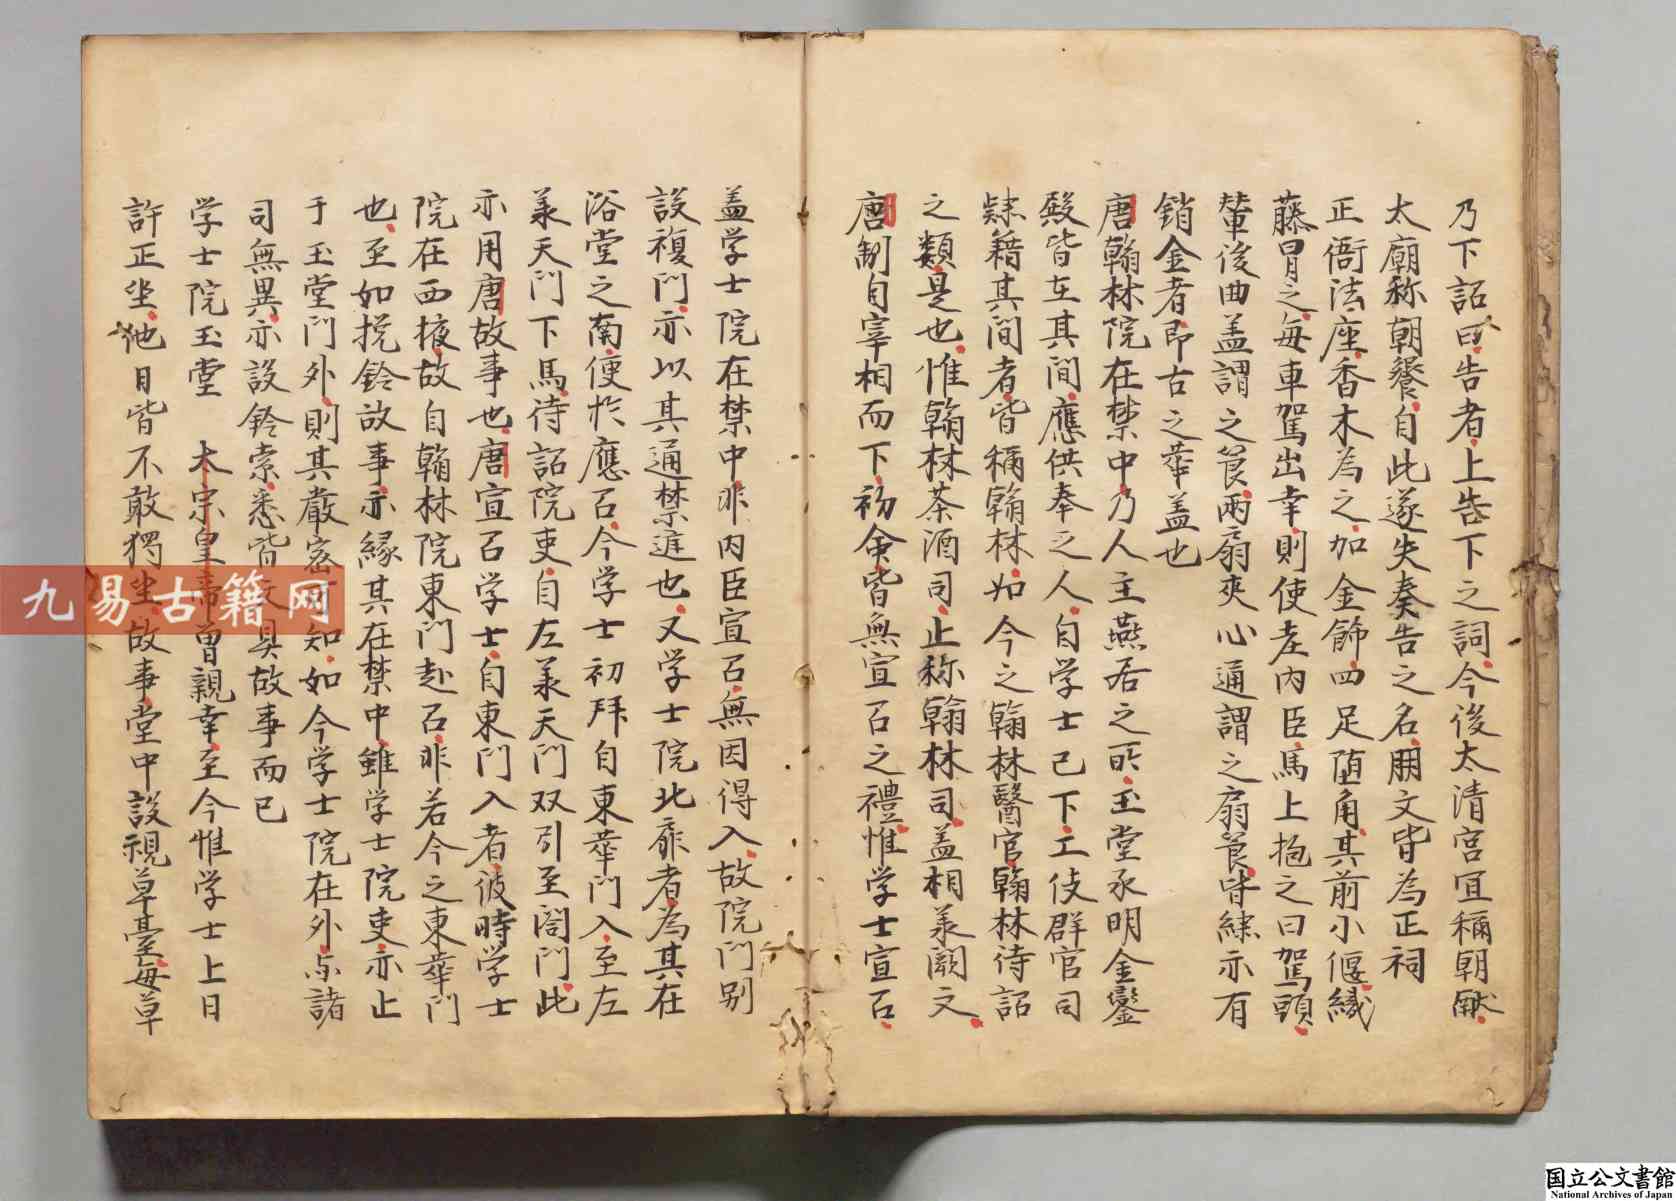 乃下詔曰告者上告下之詞今後太清宮宜稱朝献
太廟称朝饗自此遂失奏告之名册文皆為正祠
正衙法座香木為之加金飾四足堕角其前小偃織
藤冐之每車駕出幸則使老内臣馬上抱之曰駕頭
輦後曲盖謂之筤兩扇夾心通謂之扇筤皆繡亦有
銷金者即古之華盖也
唐翰林院在禁中乃人主燕居之所玉堂承明金鑾
殿皆在其間應供奉之人自学士已下工伎群官司
隸籍其間者皆稱翰林如今之翰林醫官翰林待詔
之類是也惟翰林茶酒司止称翰林司盖相承闕文
唐制自宰相而下初命皆無宣召之禮惟学士宣召
盖学士院在禁中非内臣宣召無因得入故院門别
設複門亦以其通禁庭也又学士院北扉者為其在
浴堂之南便扵應召今学士初拜自東華門入至左
承天門下馬待詔院吏自左承天門双引至閤門此
亦用唐故事也唐宣召学士自東門入者彼時学士
院在西掖故自翰林院東門赴召非若今之東華門
也至如挽鈴故事亦緣其在禁中雖学士院吏亦止
于玉堂門外則其嚴密可知如今学士院在外与諸
司無異亦設鈴索悉皆文具故事而已
学士院玉堂 太宗皇帝曾親幸至今惟学士上日
許正坐他日皆不敢獨坐故事堂中設視草臺每草
九易古籍网
国立公文書館
National Archives of Japan